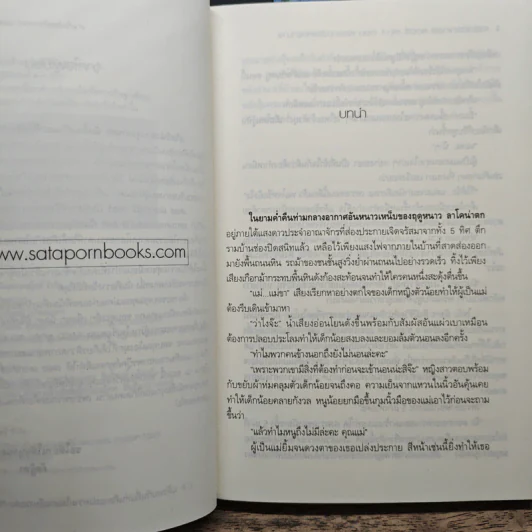 www.satapornbooks.com
บทนำ
ในยามค่ำคืนท่ามกลางอากาศอันหนาวเหน็บของฤดูหนาว ลาโคน่าตก
อยู่ภายใต้แสงดาวประจำอาณาจักรที่ส่องประกายเจิดจรัสมาจากทั้ง 5 ทิศ ตึก
รามบ้านช่องปิดสนิทแล้ว เหลือไว้เพียงแสงไฟจากภายในบ้านที่สาดส่องออก
มายังพื้นถนนหิน รถม้าของชนชั้นสูงวิ่งย่ำผ่านถนนไปอย่างรวดเร็ว ทิ้งไว้เพียง
เสียงเกือกม้ากระทบพื้นหินดังก้องสะท้อนจนทำให้ใครคนหนึ่งสะดุ้งตื่นขึ้น
"แม่...แม่ขา" เสียงเรียกหาอย่างตกใจของเด็กหญิงตัวน้อยทำให้ผู้เป็นแม่
ต้องรีบเดินเข้ามาหา
"ว่าไงจ๊ะ" น้ำเสียงอ่อนโยนดังขึ้นพร้อมกับสัมผัสอันแผ่วเบาเหมือน
ต้องการปลอบประโลมทำให้เด็กน้อยสงบลงและยอมล้มตัวนอนลงอีกครั้ง
"ทำไมพวกคนข้างนอกถึงยังไม่นอนล่ะคะ"
"เพราะพวกเขามีสิ่งที่ต้องทำก่อนจะเข้านอนน่ะสิจ๊ะ" หญิงสาวตอบพร้อม
กับขยับผ้าห่มคลุมตัวเด็กน้อยจนถึงคอ ความเย็นจากแหวนในนิ้วอันคุ้นเคย
ทำให้เด็กน้อยคลายกังวล หนูน้อยยกมือขึ้นกุมนิ้วมือของแม่เอาไว้ก่อนจะถาม
ขึ้นว่า
"แล้วทำไมหนูถึงไม่มีล่ะคะ คุณแม่"
ผู้เป็นแม่ยิ้มจนดวงตาของเธอเปล่งประกาย สีหน้าเช่นนี้ยิ่งทำให้เธอ